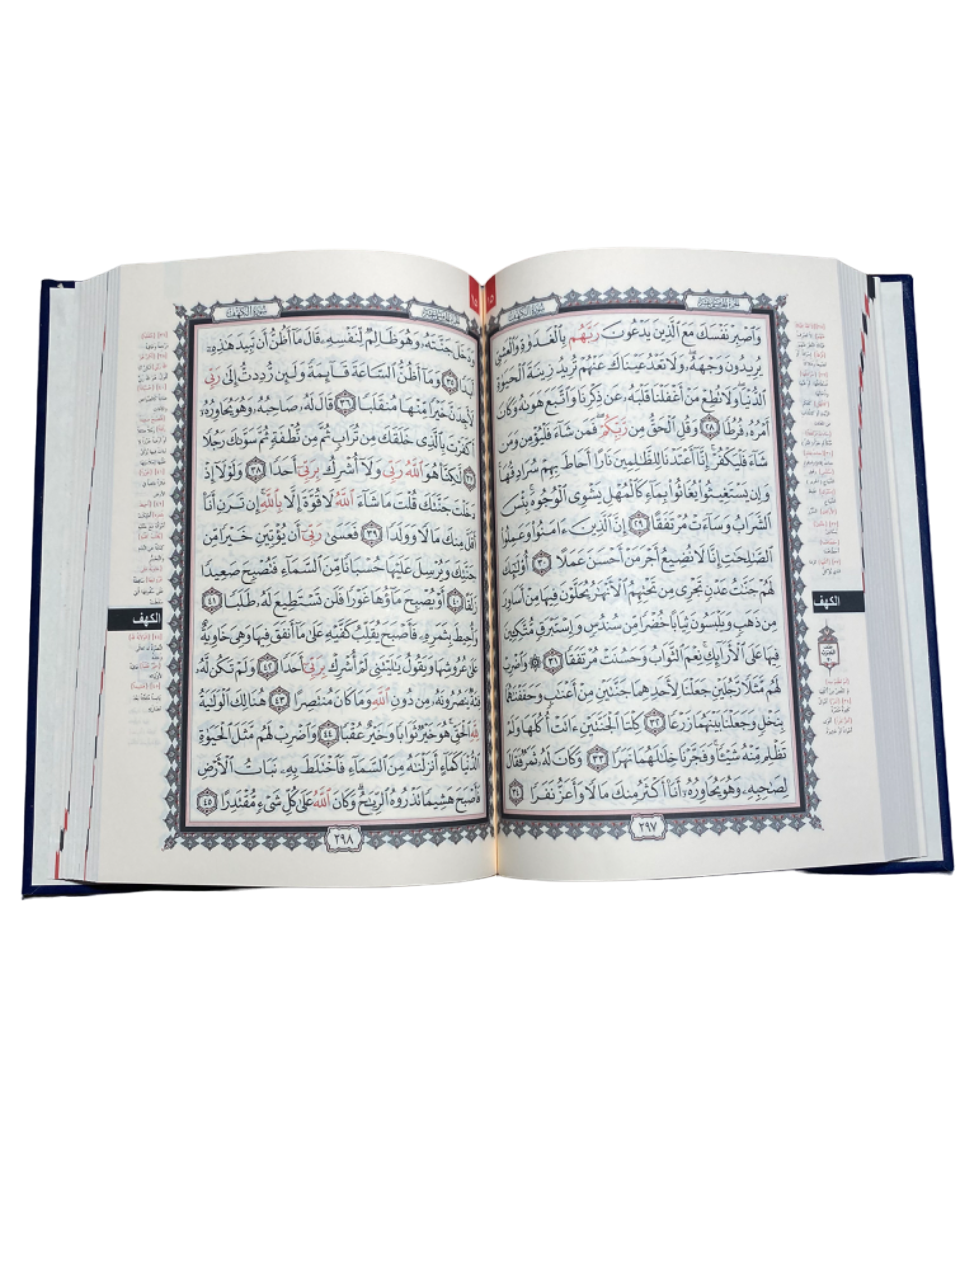 سورة الكهف
الجزء الخامس عشر
وَٱصۡبِرۡ نَفۡسَكَ مَعَ ٱلَّذِينَ يَدۡعُونَ رَبَّهُم بِٱلۡغَدَوٰةِ وَٱلۡعَشِيِّ
يُرِيدُونَ وَجۡهَهُۥۖ وَلَا تَعۡدُ عَيۡنَاكَ عَنۡهُمۡ تُرِيدُ زِينَةَ ٱلۡحَيَوٰةِ
ٱلدُّنۡيَاۖ وَلَا تُطِعۡ مَنۡ أَغۡفَلۡنَا قَلۡبَهُۥ عَن ذِكۡرِنَا وَٱتَّبَعَ هَوَىٰهُ وَكَانَ
أَمۡرُهُۥ فُرُطٗا ٢٨ وَقُلِ ٱلۡحَقُّ مِن رَّبِّكُمۡۖ فَمَن شَآءَ فَلۡيُؤۡمِن وَمَن
شَآءَ فَلۡيَكۡفُرۡۚ إِنَّآ أَعۡتَدۡنَا لِلظَّٰلِمِينَ نَارًا أَحَاطَ بِهِمۡ سُرَادِقُهَاۚ
وَإِن يَسۡتَغِيثُواْ يُغَاثُواْ بِمَآءٖ كَٱلۡمُهۡلِ يَشۡوِي ٱلۡوُجُوهَۚ بِئۡسَ
ٱلشَّرَابُ وَسَآءَتۡ مُرۡتَفَقًا ٢٩ إِنَّ ٱلَّذِينَ ءَامَنُواْ وَعَمِلُواْ
ٱلصَّٰلِحَٰتِ إِنَّا لَا نُضِيعُ أَجۡرَ مَنۡ أَحۡسَنَ عَمَلًا ٣٠ أُوْلَٰٓئِكَ
لَهُمۡ جَنَّٰتُ عَدۡنٖ تَجۡرِي مِن تَحۡتِهِمُ ٱلۡأَنۡهَٰرُ يُحَلَّوۡنَ فِيهَا مِنۡ أَسَاوِرَ
مِن ذَهَبٖ وَيَلۡبَسُونَ ثِيَابًا خُضۡرٗا مِّن سُندُسٖ وَإِسۡتَبۡرَقٖ مُّتَّكِـِٔينَ
فِيهَا عَلَى ٱلۡأَرَآئِكِۚ نِعۡمَ ٱلثَّوَابُ وَحَسُنَتۡ مُرۡتَفَقٗا ٣١ ۞ وَٱضۡرِبۡ
لَهُم مَّثَلٗا رَّجُلَيۡنِ جَعَلۡنَا لِأَحَدِهِمَا جَنَّتَيۡنِ مِنۡ أَعۡنَٰبٖ وَحَفَفۡنَٰهُمَا
بِنَخۡلٖ وَجَعَلۡنَا بَيۡنَهُمَا زَرۡعٗا ٣٢ كِلۡتَا ٱلۡجَنَّتَيۡنِ ءَاتَتۡ أُكُلَهَا وَلَمۡ
تَظۡلِم مِّنۡهُ شَيۡـٔٗاۚ وَفَجَّرۡنَا خِلَٰلَهُمَا نَهَرٗا ٣٣ وَكَانَ لَهُۥ ثَمَرٞ فَقَالَ
لِصَٰحِبِهِۦ وَهُوَ يُحَاوِرُهُۥٓ أَنَا۠ أَكۡثَرُ مِنكَ مَالٗا وَأَعَزُّ نَفَرٗا ٣٤
٢٩٧
الكهف
سورة الكهف
الجزء الخامس عشر
وَدَخَلَ جَنَّتَهُۥ وَهُوَ ظَالِمٞ لِّنَفۡسِهِۦ قَالَ مَآ أَظُنُّ أَن تَبِيدَ هَٰذِهِۦٓ
أَبَدٗا ٣٥ وَمَآ أَظُنُّ ٱلسَّاعَةَ قَآئِمَةٗ وَلَئِن رُّدِدتُّ إِلَىٰ رَبِّي
لَأَجِدَنَّ خَيۡرٗا مِّنۡهَا مُنقَلَبٗا ٣٦ قَالَ لَهُۥ صَاحِبُهُۥ وَهُوَ يُحَاوِرُهُۥٓ
أَكَفَرۡتَ بِٱلَّذِي خَلَقَكَ مِن تُرَابٖ ثُمَّ مِن نُّطۡفَةٖ ثُمَّ سَوَّىٰكَ رَجُلٗا
٣٧ لَّٰكِنَّا۠ هُوَ ٱللَّهُ رَبِّي وَلَآ أُشۡرِكُ بِرَبِّيٓ أَحَدٗا ٣٨ وَلَوۡلَآ إِذۡ
دَخَلۡتَ جَنَّتَكَ قُلۡتَ مَا شَآءَ ٱللَّهُ لَا قُوَّةَ إِلَّا بِٱللَّهِۚ إِن تَرَنِ أَنَا۠
أَقَلَّ مِنكَ مَالٗا وَوَلَدٗا ٣٩ فَعَسَىٰ رَبِّيٓ أَن يُؤۡتِيَنِ خَيۡرٗا مِّن
جَنَّتِكَ وَيُرۡسِلَ عَلَيۡهَا حُسۡبَانٗا مِّنَ ٱلسَّمَآءِ فَتُصۡبِحَ صَعِيدٗا
زَلَقًا ٤٠ أَوۡ يُصۡبِحَ مَآؤُهَا غَوۡرٗا فَلَن تَسۡتَطِيعَ لَهُۥ طَلَبٗا ٤١
وَأُحِيطَ بِثَمَرِهِۦ فَأَصۡبَحَ يُقَلِّبُ كَفَّيۡهِ عَلَىٰ مَآ أَنفَقَ فِيهَا وَهِيَ خَاوِيَةٌ
عَلَىٰ عُرُوشِهَا وَيَقُولُ يَٰلَيۡتَنِي لَمۡ أُشۡرِكۡ بِرَبِّيٓ أَحَدٗا ٤٢ وَلَمۡ تَكُن لَّهُۥ
فِئَةٞ يَنصُرُونَهُۥ مِن دُونِ ٱللَّهِ وَمَا كَانَ مُنتَصِرًا ٤٣ هُنَالِكَ ٱلۡوَلَٰيَةُ
لِلَّهِ ٱلۡحَقِّۚ هُوَ خَيۡرٞ ثَوَابٗا وَخَيۡرٌ عُقۡبٗا ٤٤ وَٱضۡرِبۡ لَهُم مَّثَلَ ٱلۡحَيَوٰةِ
ٱلدُّنۡيَا كَمَآءٍ أَنزَلۡنَٰهُ مِنَ ٱلسَّمَآءِ فَٱخۡتَلَطَ بِهِۦ نَبَاتُ ٱلۡأَرۡضِ
فَأَصۡبَحَ هَشِيمٗا تَذۡرُوهُ ٱلرِّيَٰحُۗ وَكَانَ ٱللَّهُ عَلَىٰ كُلِّ شَيۡءٖ مُّقۡتَدِرًا ٤٥
٢٩٨
الكهف